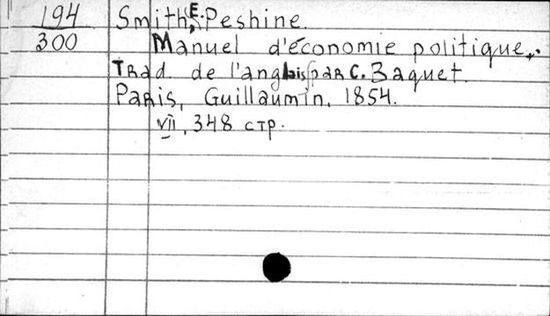 194 Smith, E. Peshine.
300 Manuel d'économie politique.
Trad. de l'anglais par C. Baquet.
Paris, Guillaumin, 1854.
VII, 348 стр.